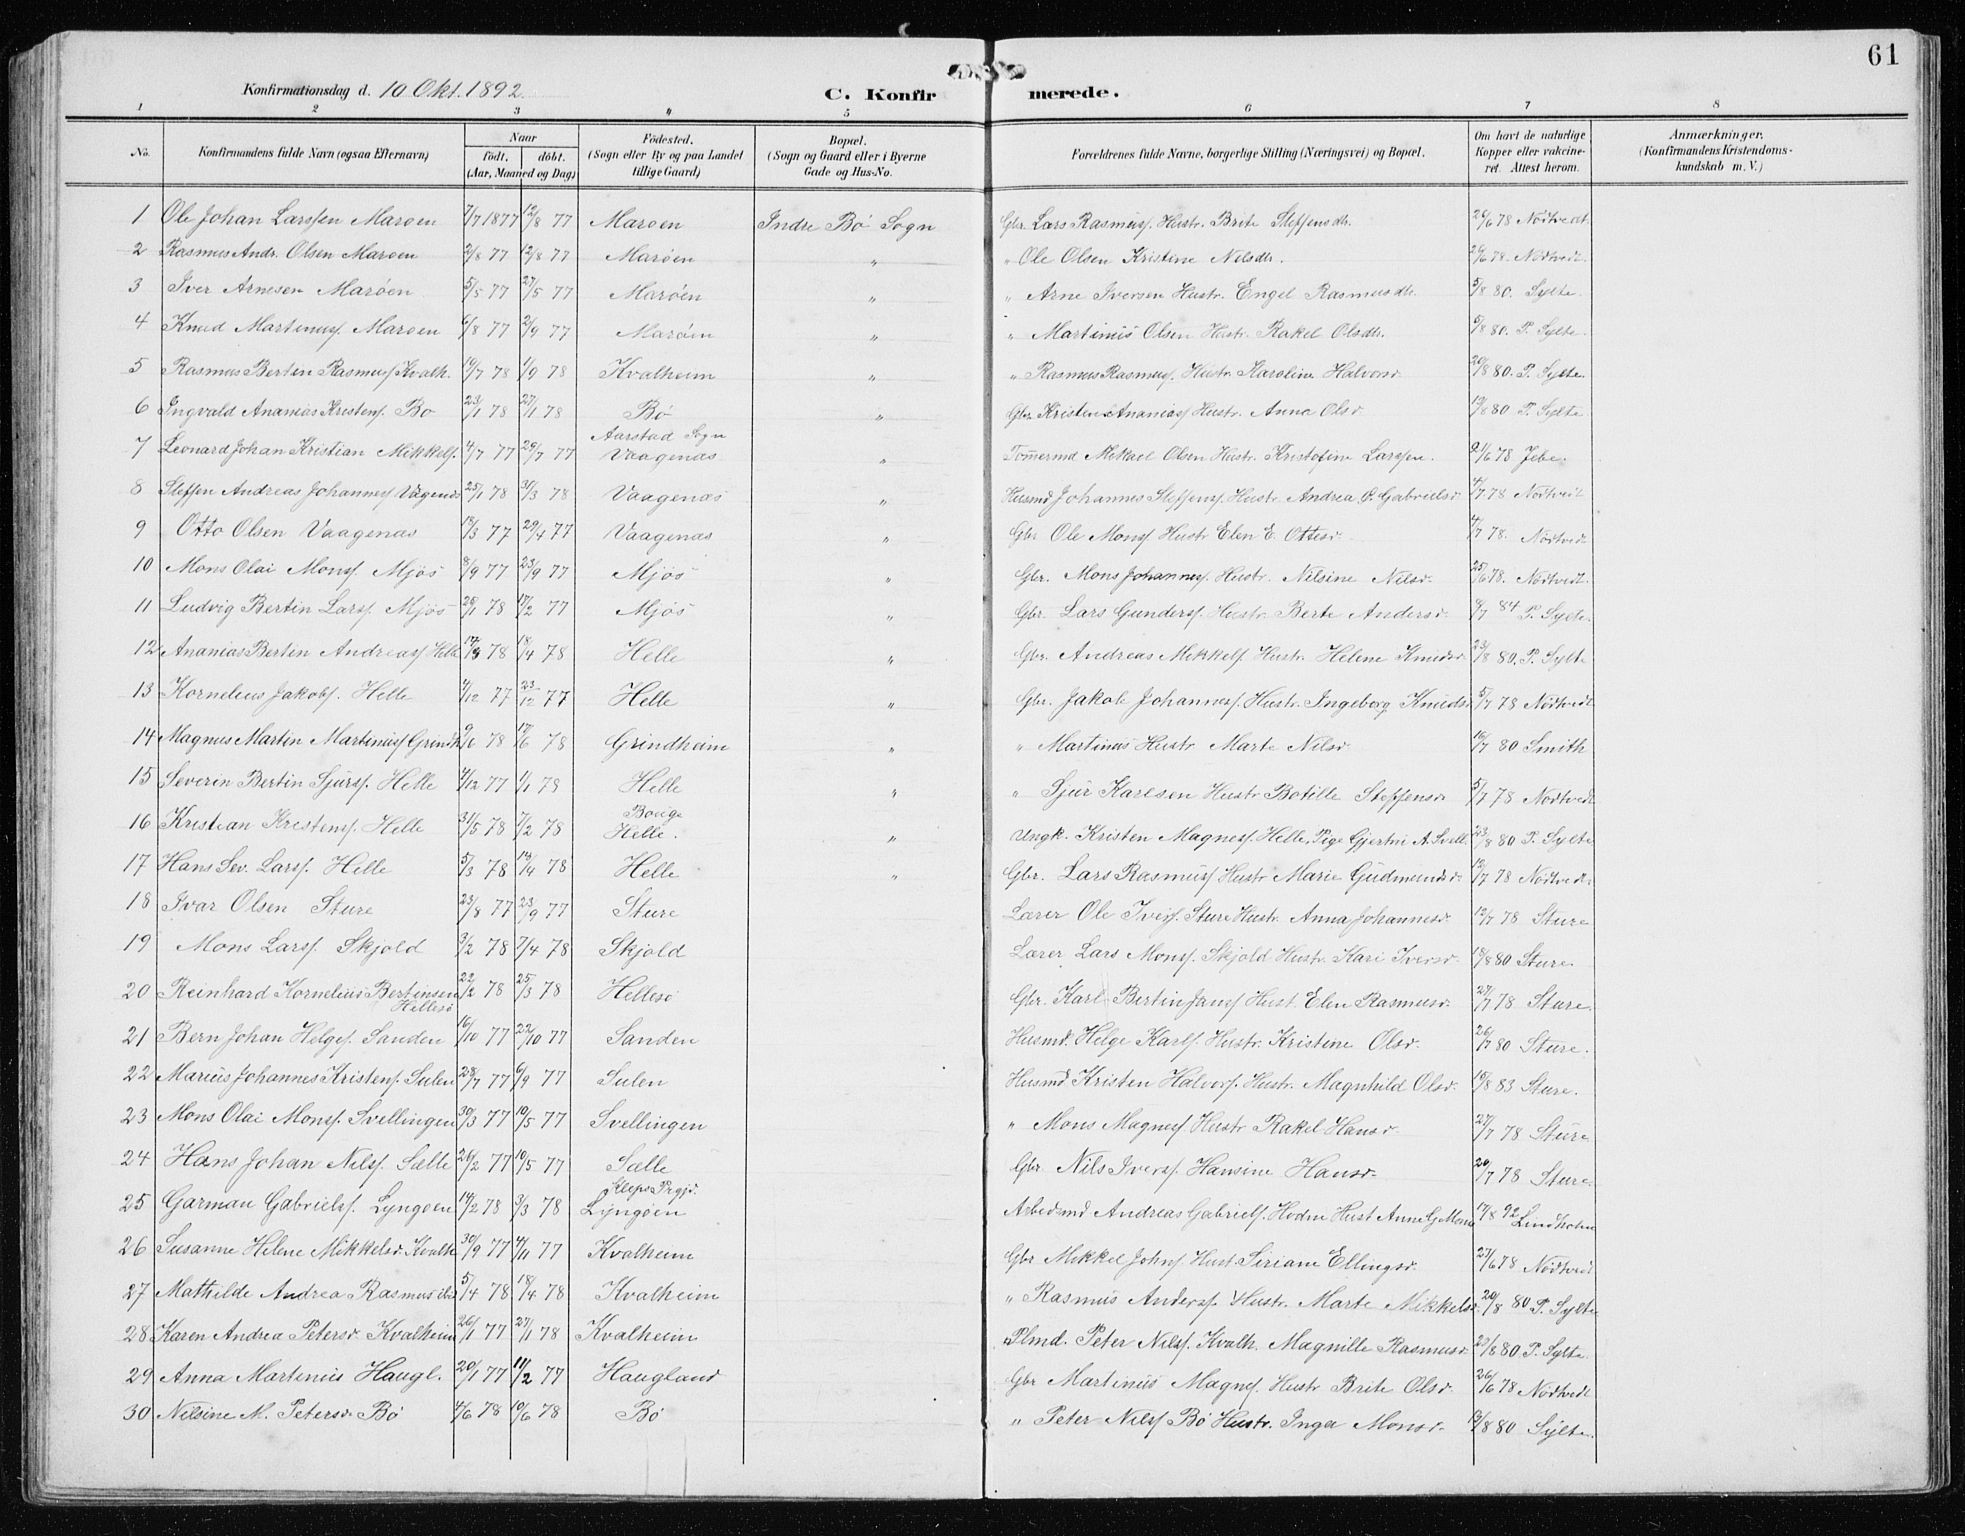 61
Konfirmationsdag d. 10 Okt. 1892
C. Konfirmerede.
1 2 3 " 5 6 7 8
No. Konfirmandens fulde Navn (ogsaa Efternavn) Naar födt. döbt. (Aar, Maaned og Dag) Födested. (Sogn eller By og paa Landet tillige Gaard) Bopæl. (Sogn og Gaard eller i Byerne Gade og Hus-No. Forældrenes fulde Navne, borgerlige Stilling (Næringsvei) og Bopæl. Om havt de naturlige Kopper eller vakcineret. Attest herom. Anmærkninger. (Konfirmandens Kristendomskundskab m. V.)
1 Ole Johan Larssen Maroen 7/7 1877 12/8 77 Maroen Indre Bö Sogn Gbr. Lars Rasmuss. Hustr. Brite Steffensdtr. 26/6 78 Nödtvedt
2 Rasmus Andr. Olsen Maroen 2/8 77 12/8 77 Maröen " " Ole Olsen Kristine Nilsdtr. 26/6 78. Nödtvedt
3 Iver Arnesen Maröen 5/5 77 27/5 77 Maröen " " Arne Iversen Hustr. Engel Rasmusdtr. 5/8 80. Sylte
4 Knud Martinuss. Maroen 6/8 77 2/9 77 Maröen " " Martinus Olsen Hustr. Rakel Olsdtr. 5/8 80. P. Sylte
5 Rasmus Bertin Rasmuss Kvalh. 19/7 78 1/9 78 Kvalheim " " Rasmus Rasmuss. Hustr. Karoline Halvorsd. 20/8 80. P. Sylte
6 Ingvald Ananias Kristens. Bö 23/1 78 27/1 78 Bö " Gbr. Kristen Ananiass Hustr. Anna Olsd. 19/8 80 P. Sylte
7 Leonard Johan Kristian Mikkels. 4/7 77 29/7 77 Aarstad Sogn Vaagenas " Tömermd Mikael Olsen Hustr. Kristofine Larssen. 21/6 78 Jebe.
8 Steffen Andreas Johanness Vagenæs 25/1 78 31/3 78 Vaagenæs " Husmd Johannes Steffens. Hustr. Andrea P. Gabrielsd. 4/7 78 Nödtvedt
9 Otto Olsen Vaagenæs 13/3 77 29/4 77 Vaagenæs " Gbr Ole Monss Hustr Elen E. Ottesd. 4/7 78. Nödtvedt
10 Mons Olai Monss. Mjös 8/9 77 23/9 77 Mjös " Gbr. Mons Johanness. Hustr. Nilsine Nilsd. 25/6 78. Nödtvedt
11 Ludvig Bertin Larss. Mjös 26/1 78 17/2 77 Mjös " Gbr. Lars Gunderss. Hustr. Berte Andersd. 9/7 84 P. Sylte
12 Ananias Bertin Andreass Helle 14/3 78 18/4 78 Helle " Gbr. Andreas Mikkels. Hustr. Helene Knudsd. 23/8 80. P. Sylte
13 Kornelius Jakobs. Helle 4/12 77 23/12 77 Helle " Gbr. Jakob Johanness. Hustr. Ingeborg Knudsd 5/7 78 Nödtvedt
14 Magnus Martin Martinuss Grindh. 9/6 78 17/6 78 Grindheim " " Martinus Hustr Marte Nilsd. 16/7 80 Smith
15 Severin Bertin Sjurss. Helle 4/12 77 1/1 78 Helle " " Sjur Karlsen Hustr Botille Steffensd. 5/7 78 Nödtvedt
16 Kristian Kristens. Helle 31/5 78 7/2 78 Helle. " Ungk. Kristen Magness. Helle, Pige Gjertri A. Svell. 23/8 80 P. Sylte
17 Hans Sev. Larss. Helle 5/3 78 14/4 78 Helle " Gbr. Lars Rasmuss Hustr Marie Gudmundsd. 12/7 78 Nödtvedt
18 Ivar Olsen Sture 23/8 77 23/9 77 Sture Lærer Ole Ivers. Sture Hustr. Anna Johannesd. 12/7 78 Sture
19 Mons Larss. Skjold 3/2 78 7/4 78 Skjold Lærer Lars Monss. Skjold Hustr. Kari Iversd. 18/8 80 Sture
20 Reinhard Kornelius Bertinsen Hellesö 22/2 78 25/3 78 Hellesö Gbr. Karl Bertin Janss Hust. Elen Rasmusd. 27/7 78 Sture.
21 Bern Johan Helges. Sanden 16/10 77 22/10 77 Sanden Husmd. Helge Karls. Hustr. Kristine Olsd. 26/7 80 Sture.
22 Marius Johannes Kristens. Sulen 28/7 77 6/9 77 Sulen Husmd Kristen Halvors. Hustr. Magnhild Olsd. 19/8 83 Sture.
23 Mons Olai Monss. Svellingen 30/3 77 10/5 77 Svellingen " Mons Magness Hustr Rakel Hansd. 27/7 78 Sture
24 Hans Johan Nilss. Sælle 26/2 77 10/5 77 Sælle Gbr Nils Iverss. Hansine Hansd. 20/7 78 Sture
25 Garman Gabrielss. Lyngöen 14/2 78 3/3 78 Lyngöen Arbedsmd Andreas Gabriels. Hust Anne G. 17/8 92 Lindholm
26 Susanne Helene Mikkelsd. Kvalh 30/9 77 4/11 77 Kvalheim Gbr Mikkel Johns. Hust. Siriane Ellingsd. 27/6 78 Nödtvedt
27 Mathilde Andrea Rasmusdtr 5/4 78 18/4 78 Kvalheim " Rasmus Anders. Hustr. Marte Mikkelsd. 20/8 80 P. Sylte
28 Karen Andrea Petersd. Kvalheim 26/1 77 27/1 78 Kvalheim Plmd. Peter Nilss. Kvalh. Magnille Rasmusd. 23/8 80 P. Sylte
29 Anna Martinus Haugl. 20/1 77 11/2 77 Haugland Gbr Martinus Magness. Hustr Brite Olsd. 26/6 78 Nödtvedt
30 Nilsine M. Petersd. Bö 4/6 78 10/6 78 Bö " Peter Nilss Bö Hustr. Inga Monsd. 13/8 80 Sylte.